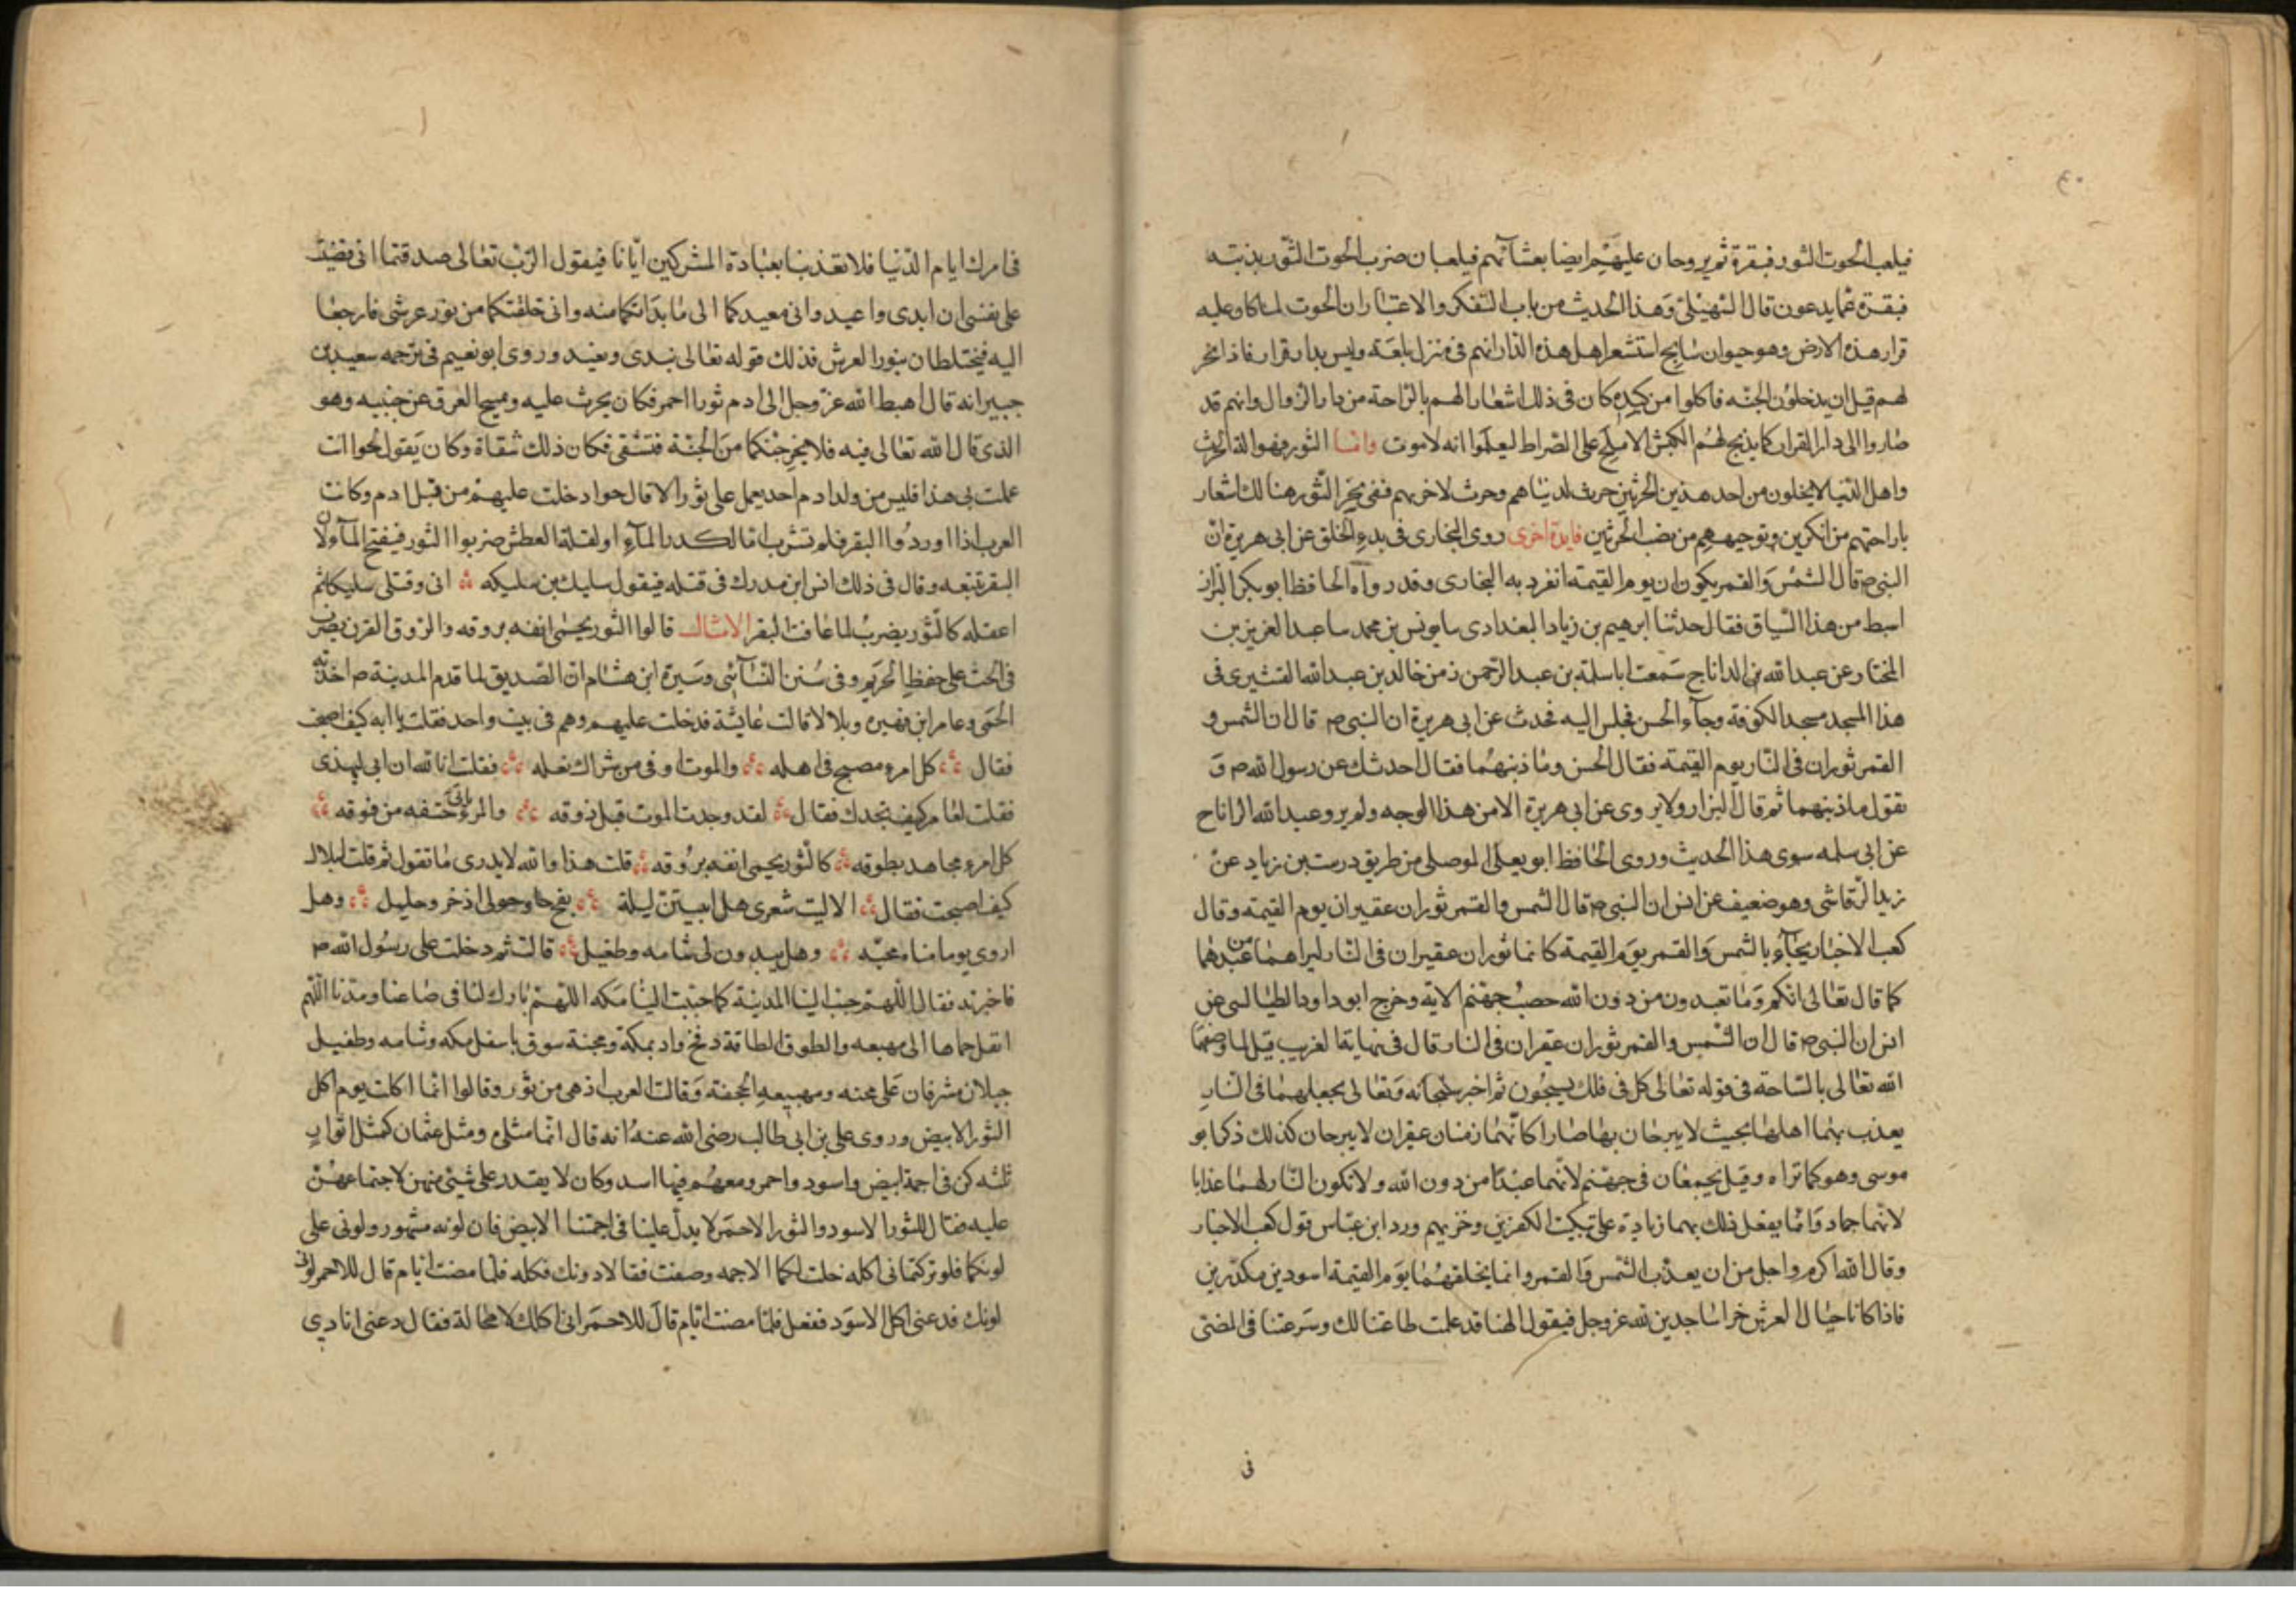 ٤٠
فيلعب الحوت الثور فبقرة ثم يروحان عليهم ايضا بعشائهم فيلعبان ضرب الحوت الثور بذنبه
فبقره مما يدعون قال السهيلي وهذا الحديث من باب التفكر والاعتبار ان الحوت لما كان عليه
قرار هذه الارض وهو حيوان سابح استشعر اهل هذه الدار انهم في منزل بلغة وليس بدار قرار فاذا نحر
لهم قبل ان يدخلون الجنه فاكلوا من كبده كان في ذلك اشعار الهم بالراحة من دار الزوال وانهم قد
صاروا الى دار القرار كما يذبح لهم الكبش الاملح على الصراط ليعلموا انه لا موت واما الثور فهو الة الحرث
واهل الدنيا لا يخلون من احد هذين الحرثين حرث لدنياهم وحرث لاخريهم ففي نحر الثور هنالك اشعار
باراحتهم من الكدين وتوجيههم من نصب الحرثين فايدة اخرى روى البخارى في بدء الخلق عن ابى هريرة ان
النبى ص قال الشمس والقمر يكوران يوم القيمة انفرد به البخارى وقد رواه الحافظ ابو بكر البزار
ابسط من هذا السياق فقال حدثنا ابرهيم بن زياد البغدادى سا يونس بن محمد سا عبد العزيز بن
المختار عن عبد الله بن الداناج سمعت ابا سلمة بن عبد الرحمن زمن خالد بن عبد الله القشيرى فى
هذا المسجد مسجد الكوفة وجاء الحسن فجلس اليه فحدث عن ابى هريرة ان النبى ص قال ان الشمس و
القمر ثوران فى النار يوم القيمة فقال الحسن وما ذنبهما فقال احدثك عن رسول الله ص و
تقول ما ذنبهما ثم قال البزار ولا يروى عن ابى هريرة الا من هذا الوجه ولم يرو عبد الله الداناج
عن ابى سلمه سوى هذا الحديث وروى الحافظ ابو يعلى الموصلى من طريق درست بن زياد عن
زيد الرقاشى وهو ضعيف عن انس ان النبى ص قال الشمس والقمر ثوران عقيران يوم القيمة وقال
كعب الاخبار يجاء بالشمس والقمر يوم القيمة كانما ثوران عقيران فى النار ليراهما من عبدهما
كما قال تعالى انكم وما تعبدون من دون الله حصب جهنم الاية وخرج ابو داود الطيالسى عن
انس ان النبى ص قال ان الشمس والقمر ثوران عقران فى النار قال فى نهاية الغريب قيل لما وصفهما
الله تعالى بالسباحة فى قوله تعالى كل فى فلك يسبحون ثم اخبر سبحانه وتعالى يجعلهما فى النار
يعذب بهما اهلها بحيث لا يبرحان بها صارا كانهما زمنان عقران لا يبرحان كذلك ذكر ابو
موسى وهو كما تراه وقيل يجمعان فى جهنم لانهما عبدا من دون الله ولا تكون النار لهما عذابا
لانهما جماد وانما يفعل ذلك بهما زيادة على تبكيت الكفرين وخزيهم ورد ابن عباس قول كعب الاحبار
وقال الله اكرم واجل من ان يعذب الشمس والقمر وانما يخلقهما يوم القيمة اسودين مكدرين
فاذا كانا حيال العرش خرا ساجدين لله عز وجل فيقول الهنا قد علمت طاعتنا لك وسرعتنا فى المضى
فى
فى امرك ايام الدنيا فلا تعذبنا بعبادة المشركين ايانا فيقول الرب تعالى صدقتما انى قضيت
على نفسى ان ابدى واعيد وانى معيدكما الى ما بداتكما منه وانى خلقتكما من نور عرشى فارجعا
اليه فيختلطان بنور العرش فذلك قوله تعالى يبدى ويعيد وروى ابو نعيم فى ترجمه سعيد بن
جبير انه قال اهبط الله عز وجل الى ادم ثورا احمر فكان يحرث عليه ويمسح العرق عن جبينه وهو
الذى قال الله تعالى فيه فلا يخرجنكما من الجنة فتشقى فكان ذلك شقاة وكان يقول لحوا انت
عملت بى هذا فليس من ولد ادم احد يعمل على ثور الا قال حوا دخلت عليهم من قبل ادم وكانت
العرب اذا اوردوا البقر فلم تشرب اما لكدر الماء او لقلة العطش ضربوا الثور فيفتح الماء لان
البقر تتبعه وقال فى ذلك انس ابن مدرك فى قتله فيقول سليك بن سليكه انى وقتلى سليكا ثم
اعقله كالثور يضرب لما عافت البقر الامثال قالوا الثور يحمى انفه بروقه والروق القرن يضرب
فى الحث على حفظ الحريم وفى سنن النسائى وسيرة ابن هشام ان الصديق لما قدم المدينة ص اخذته
الحمى وعامر ابن فهيره وبلالا قالت عايشة فدخلت عليهم وهم فى بيت واحد فقلت يا ابه كيف اصبحت
فقال كل امرء مصبح فى اهله والموت اوفى من شراك نعله فقلت انا لله ان ابى ليهذى
فقلت لعامر كيف تجدك فقال لقد وجدت الموت قبل ذوقه والمرء ياتى حتفه من فوقه
كل امرء مجاهد بطوقه كالثور يحمى انفه بروقه قلت هذا والله لا يدرى ما تقول ثم قلت لبلال
كيف اصبحت فقال الا ليت شعرى هل ابيتن ليلة بفخ وحولى اذخر وجليل وهل
اروى يوما مياه مجنه وهل يبدون لى شامه وطفيل قالت ثم دخلت على رسول الله ص
فاخبرته فقال اللهم حبب الينا المدينة كما حببت الينا مكه اللهم بارك لنا فى صاعنا ومدنا اللهم
انقل حماها الى مهيعه والطوق الطاقة وفخ واد بمكة ومجنة سوق باسفل مكه وشامه وطفيل
جبلان مشرفان على مجنه ومهيعه الجحفة وقالت العرب اذهى من ثور وقالوا انما اكلت يوم اكل
الثور الابيض وروى على بن ابى طالب رضى الله عنه انه قال انما مثلى ومثل عثمان كمثل اثوار
ثلثه كن فى اجمة ابيض واسود واحمر ومعهم فيها اسد وكان لا يقدر على شئ منهن لاجتماعهن
عليه فقال للثور الاسود والثور الاحمر لا يدل علينا فى اجمتنا الا الابيض فان لونه مشهور ولونى على
لونكما فلو تركتمانى اكله خلت لكما الاجمه وصفت فقالا دونك فكله فلما مضت ايام قال للاحمر لونى
لونك فدعنى اكل الاسود ففعل فلما مضت ايام قال للاحمر انى اكلك لا محالة فقال دعنى انادى